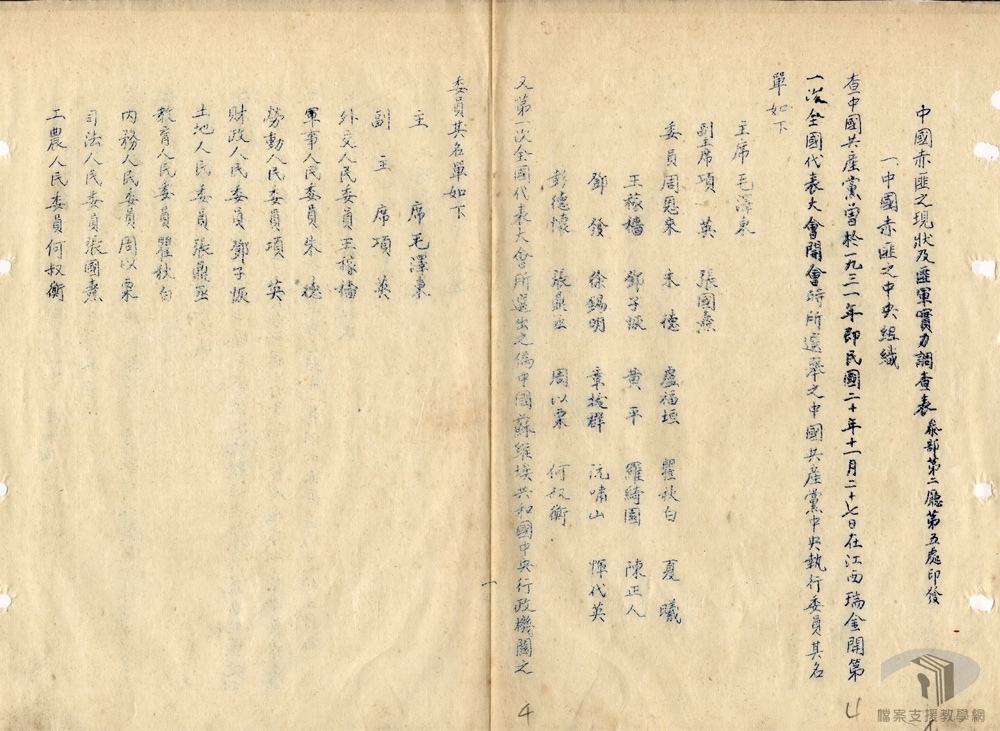 中國赤匪之現狀及匪軍實力調查表 參部第二廳第五處印發
一、中國赤匪之中央組織
查中國共產黨曾於一九三一年即民國二十年十一月二十七日在江西瑞金開第
一次全國代表大會開會時所選舉之中國共產黨中央執行委員其名
單如下
主席 毛澤東
副主席 項英 張國燾
委員 周恩來 朱德 盧福垣 瞿秋白 夏曦
王稼檣 鄧子恢 黃平 羅綺園 陳正人
鄧發 徐錫明 章拔群 阮嘯山 惲代英
彭德懷 張鼎丞 周以栗 何叔衡
又第一次全國代表大會所選出之偽中國蘇維埃共和國中央行政機關之
一
委員其名單如下
主席 毛澤東
副主席 項英
外交人民委員 王稼檣
軍事人民委員 朱德
勞動人民委員 項英
財政人民委員 鄧子恢
土地人民委員 張鼎丞
教育人民委員 瞿秋白
內務人民委員 周以栗
司法人民委員 張國燾
工農人民委員 何叔衡
4
4
檔案支援教學網